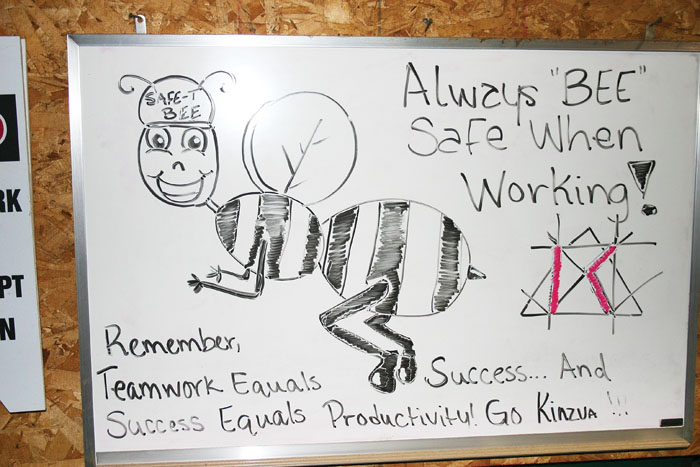 SAFE-T
BEE
Always "BEE"
Safe When
Working!
K
Remember,
Teamwork Equals Success... And
Success Equals Productivity! Go Kinzua !!!
RK
PT
N